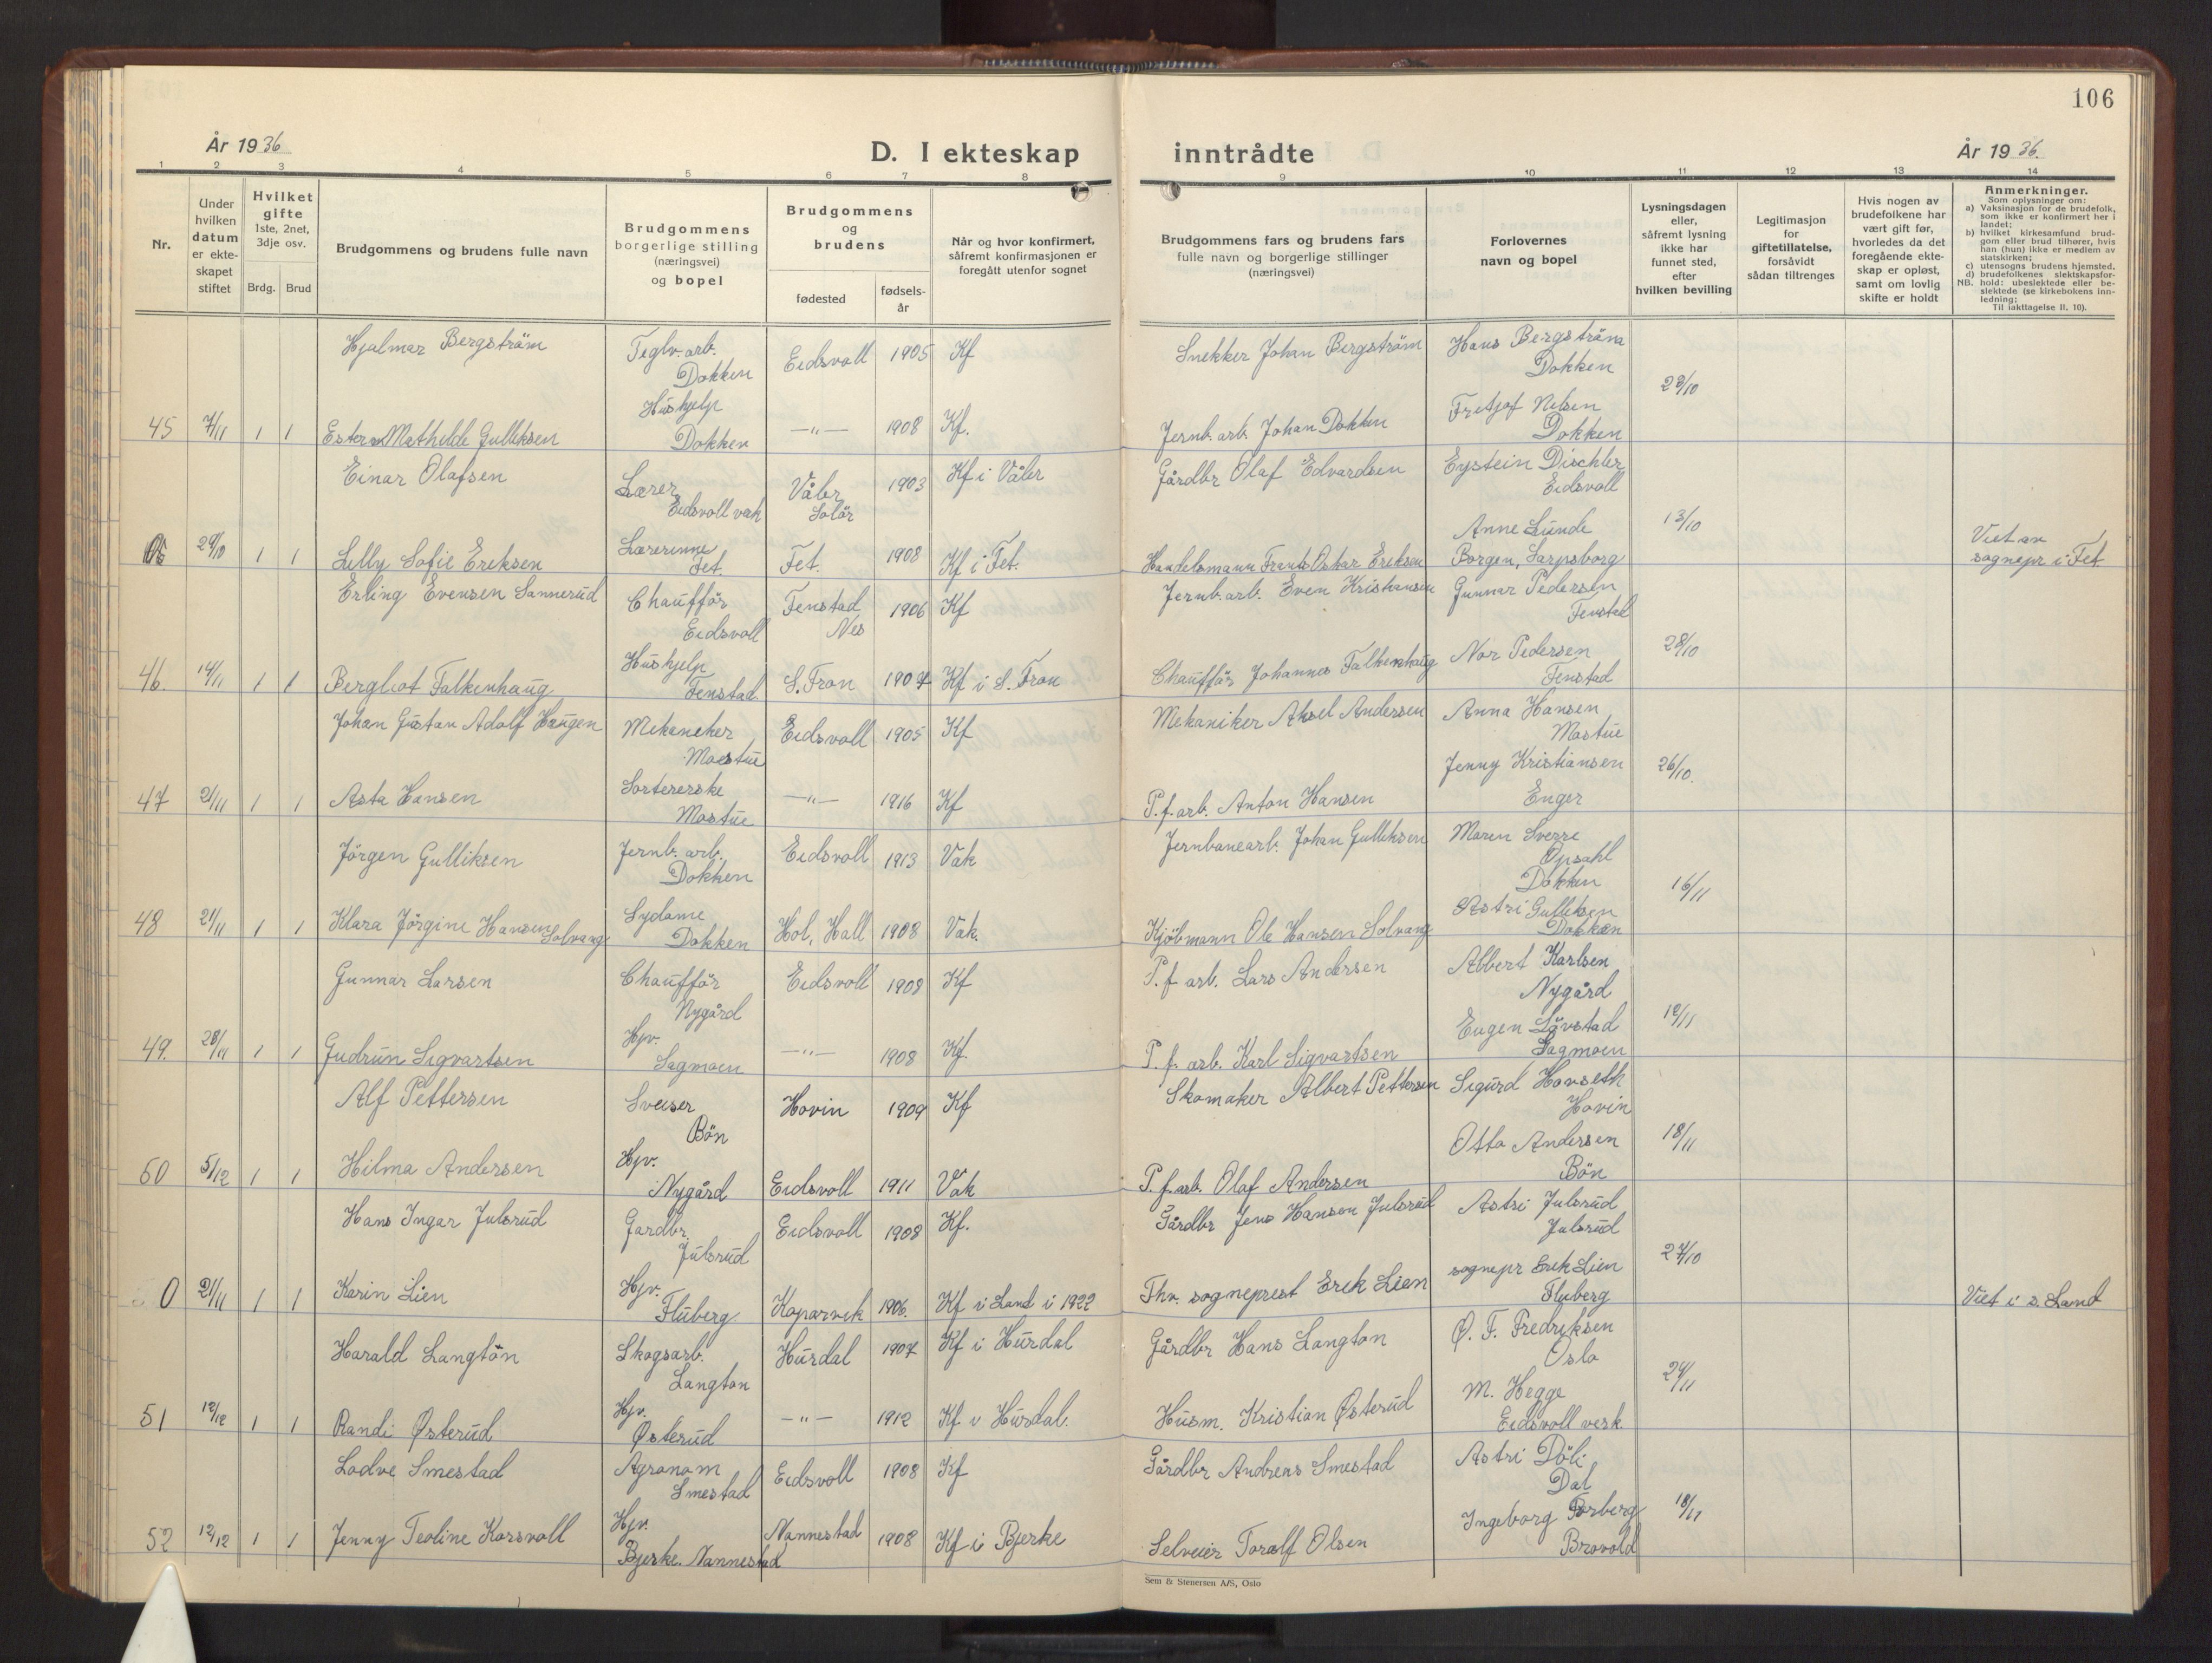 106
År 1936
D. I ekteskap inntrådte
År 1936.
1 2 3 4 5 6 7 8 9 10 11 12 13 14
Nr.
Under
hvilken
datum
er ekte-
skapet
stiftet
Hvilket
gifte
1ste, 2net,
3dje osv.
Brdg. Brud
Brudgommens og brudens fulle navn
Brudgommens
borgerlige stilling
(næringsvei)
og bopel
Brudgommens
og
brudens
fødested
fødsels-
år
Når og hvor konfirmert,
såfremt konfirmasjonen er
foregått utenfor sognet
Brudgommens fars og brudens fars
fulle navn og borgerlige stillinger
(næringsvei)
Forlovernes
navn og bopel
Lysningsdagen
eller,
såfremt lysning
ikke har
funnet sted,
efter
hvilken bevilling
Legitimasjon
for
giftetillatelse,
forsåvidt
sådan tiltrenges
Hvis nogen av
brudefolkene har
vært gift før,
hvorledes da det
foregående ekte-
skap er opløst,
samt om lovlig
skifte er holdt
Anmerkninger.
Som oplysninger om:
a) Vaksinasjon for de brudefolk,
som ikke er konfirmert her i
landet;
b) hvilket kirkesamfund brud-
gom eller brud tilhører, hvis
han (hun) ikke er medlem av
statskirken;
c) utensogns brudens hjemsted.
d) brudefolkenes slektskapsfor-
NB. hold: ubeslektede eller be-
slektede (se kirkebokens inn-
ledning;
Til iakttagelse II. 10).
Hjalmar Bergström Teglv.arb. Eidsvoll 1905 Kf Snekker Johan Bergström Hans Bergström
Dokken Dokken
23/10
Hushjelp Fretjof Nelsen
45 7/11 1 1 Ester Mathilde Gulliksen Dokken —"— 1908 Kf. Jernb.arb. Johan Dokken Dokken
Einar Olafsen Lærer Våler 1903 Kf i Våler Gårdbr Olaf Edvardsen Eystein Dischler
Eidsvoll verk Solör Eidsvoll
Anne Lunde 13/10
29/10 1 1 Lelly Sofie Ereksen Lærerinne Fet. 1908 Kf i Fet. Handelsmann Frants Oskar Ereksen Borgen, Sarpsborg Viet av
Fet. sognepr i Fet
Erling Evensen Sannerud Chaufför Fenstad 1906 Kf Jernb.arb. Even Kristiansen Gunnar Pedersen
Eidsvoll Nes Fenstad
Hushjelp Nor Pedersen 28/10
46. 14/11 1 1 Bergliot Falkenhaug Fenstad S. Fron 1907 Kf i S. Fron Chaufför Johannes Falkenhaug Fenstad
Johan Gustav Adolf Haugen Mekaneker Eidsvoll 1905 Kf Mekaniker Aksel Andersen Anna Hansen
Mostue Mostue
Jenny Kristiansen 26/10.
47 21/11 1 1 Asta Hansen Sortererske —"— 1916 Kf P.f.arb. Anton Hansen Enger
Mostue
Jörgen Gulliksen Jernb.arb. Eidsvoll 1913 Vak Jernbanearb. Johan Gulliksen Maren Sverre
Dokken Opsahl
Dokken 16/11
48 21/11 1 1 Klara Jörgine Hansen Solvang Sydame Hol, Hall 1908 Vak. Kjöbmann Ole Hansen Solvang Astri Gulliksen
Dokken Dokken
Gunnar Larsen Chaufför Eidsvoll 1908 Kf P.f arb. Lars Andersen Albert Karlsen
Nygård Nygård
Hjv. Eugen Lövstad 12/11
49. 28/11 1 1 Gudrun Sigvartsen Sagmoen —"— 1908 Kf. P.f. arb. Karl Sigvartsen Sagmoen
Alf Pettersen Sveiser Hovin 1909 Kf Skomaker Albert Pettersen Sigurd Hovseth
Bön Hovin
Hjv. Otto Andersen 18/11
50 5/12 1 1 Hilma Andersen Nygård Eidsvoll 1911 Vak P.f.arb. Olaf Andersen Bön
Hans Ingar Julsrud Gardbr. Eidsvoll 1908 Kf. Gårdbr Jens Hansen Julsrud Astri Julsrud
Julsrud Julsrud
27/10
0 21/11 1 1 Karin Lien Hjv. Koparvik 1906. Kf i Land i 1922 Fhv. sogneprest Erik Lien sognepr Erik Lien Viet i s. Land
Fluberg Fluberg
Harald Langton Skogsarb. Hurdal 1907 Kf i Hurdal Gårdbr Hans Langton Ø. F. Fredriksen
Langton Oslo
Hjv. M. Hegge 24/11
51 12/12 1 1 Randi Østerud Østerud —"— 1912 Kf i Hurdal. Husm. Kristian Østerud Eidsvoll verk
Lodve Smestad Agronom Eidsvoll 1908 Kf Gårdbr Andreas Smestad Astri Döli
Smestad Dal
Hjv. Ingeborg Forberg 18/11
52 12/12 1 1 Jenny Teoline Korsvoll Bjerke. Nannestad Nannestad 1908 Kf i Bjerke Selveier Toralf Olsen Brovold
Sem & Stenersen A/S, Oslo